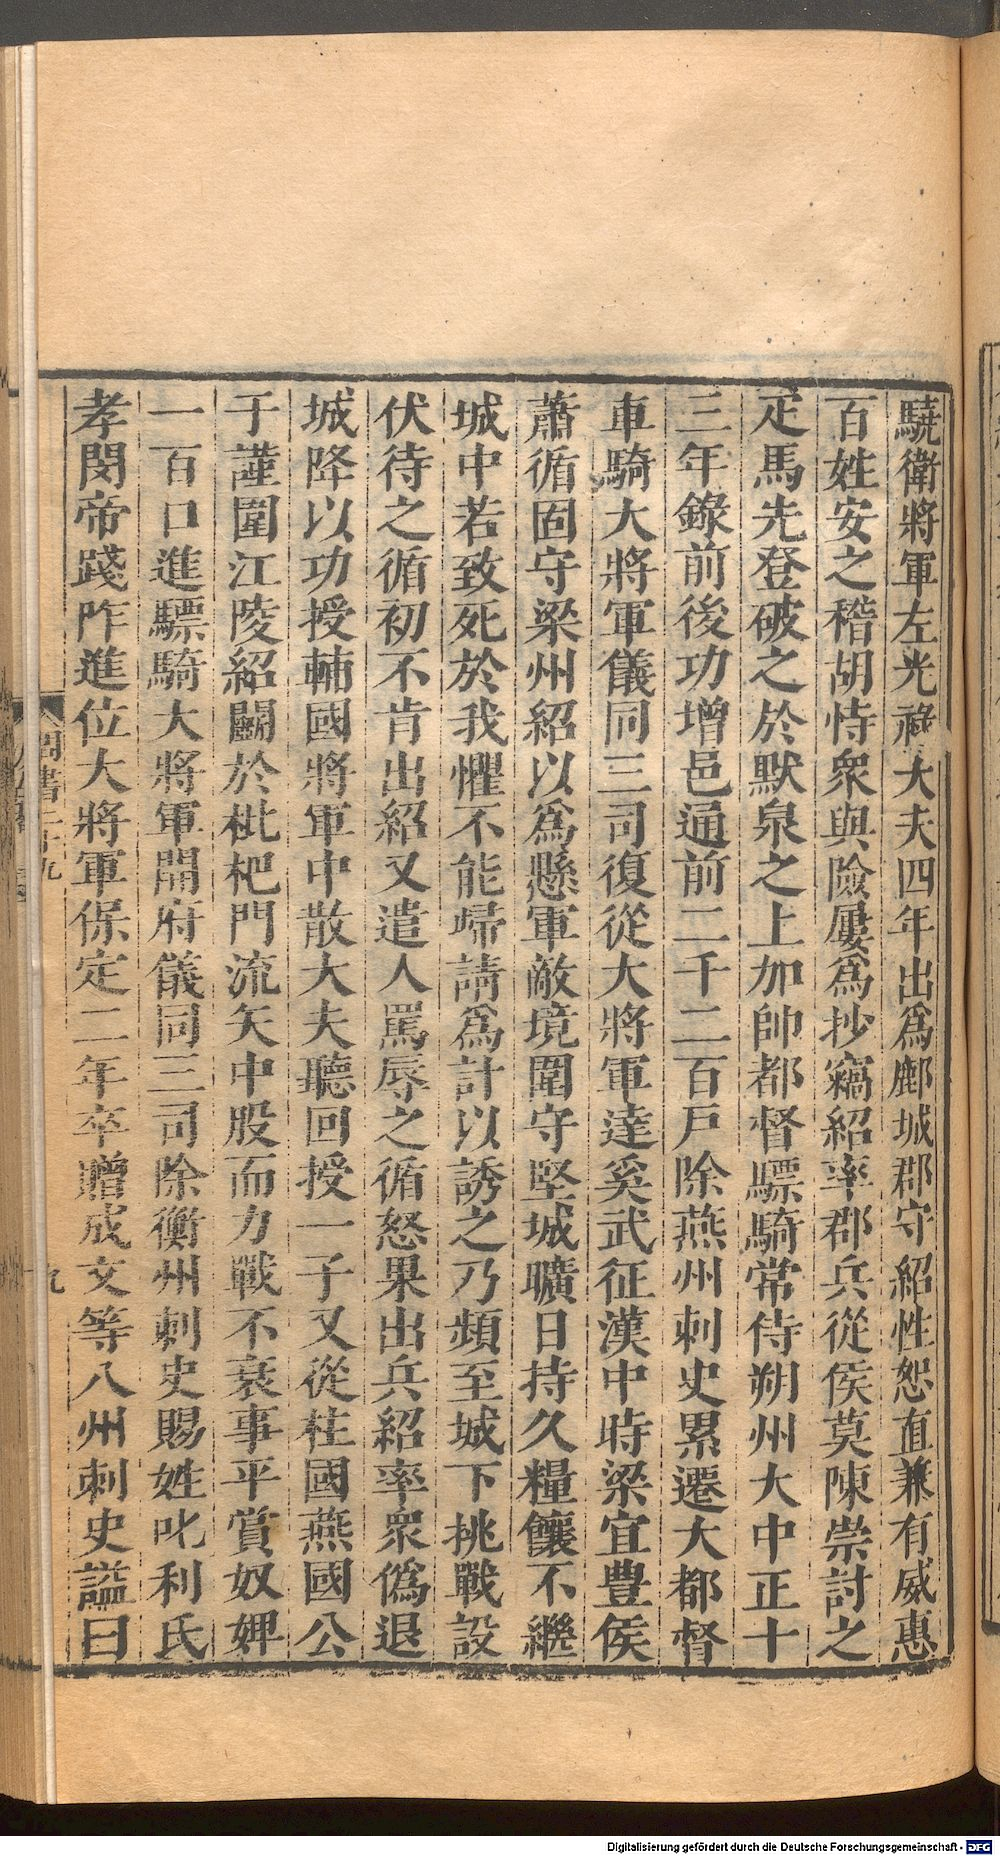 驍衛將軍左光祿大夫四年出爲鄜城郡守紹性恕直兼有威惠
百姓安之稽胡恃衆與險屢爲抄竊紹率郡兵從侯莫陳崇討之
疋馬先登破之於默泉之上加帥都督驃騎常侍朔州大中正十
三年錄前後功增邑通前二千二百戶除燕州刺史累遷大都督
車騎大將軍儀同三司復從大將軍達奚武征漢中時梁宜豊侯
蕭循固守梁州紹以爲懸軍敵境圍守堅城曠日持久糧饟不繼
城中若致死於我懼不能歸請爲計以誘之乃頻至城下挑戰設
伏待之循初不肯出紹又遣人罵辱之循怒果出兵紹率衆僞退
城降以功授輔國將軍中散大夫聽回授一子又從柱國燕國公
于謹圍江陵紹鬭於枇杷門流矢中股而力戰不衰事平賞奴婢
一百口進驃騎大將軍開府儀同三司除衡州刺史賜姓叱利氏
孝閔帝踐阼進位大將軍保定二年卒贈成文等八州刺史謚曰
九
Digitalisierung gefördert durch die Deutsche Forschungsgemeinschaft - DFG